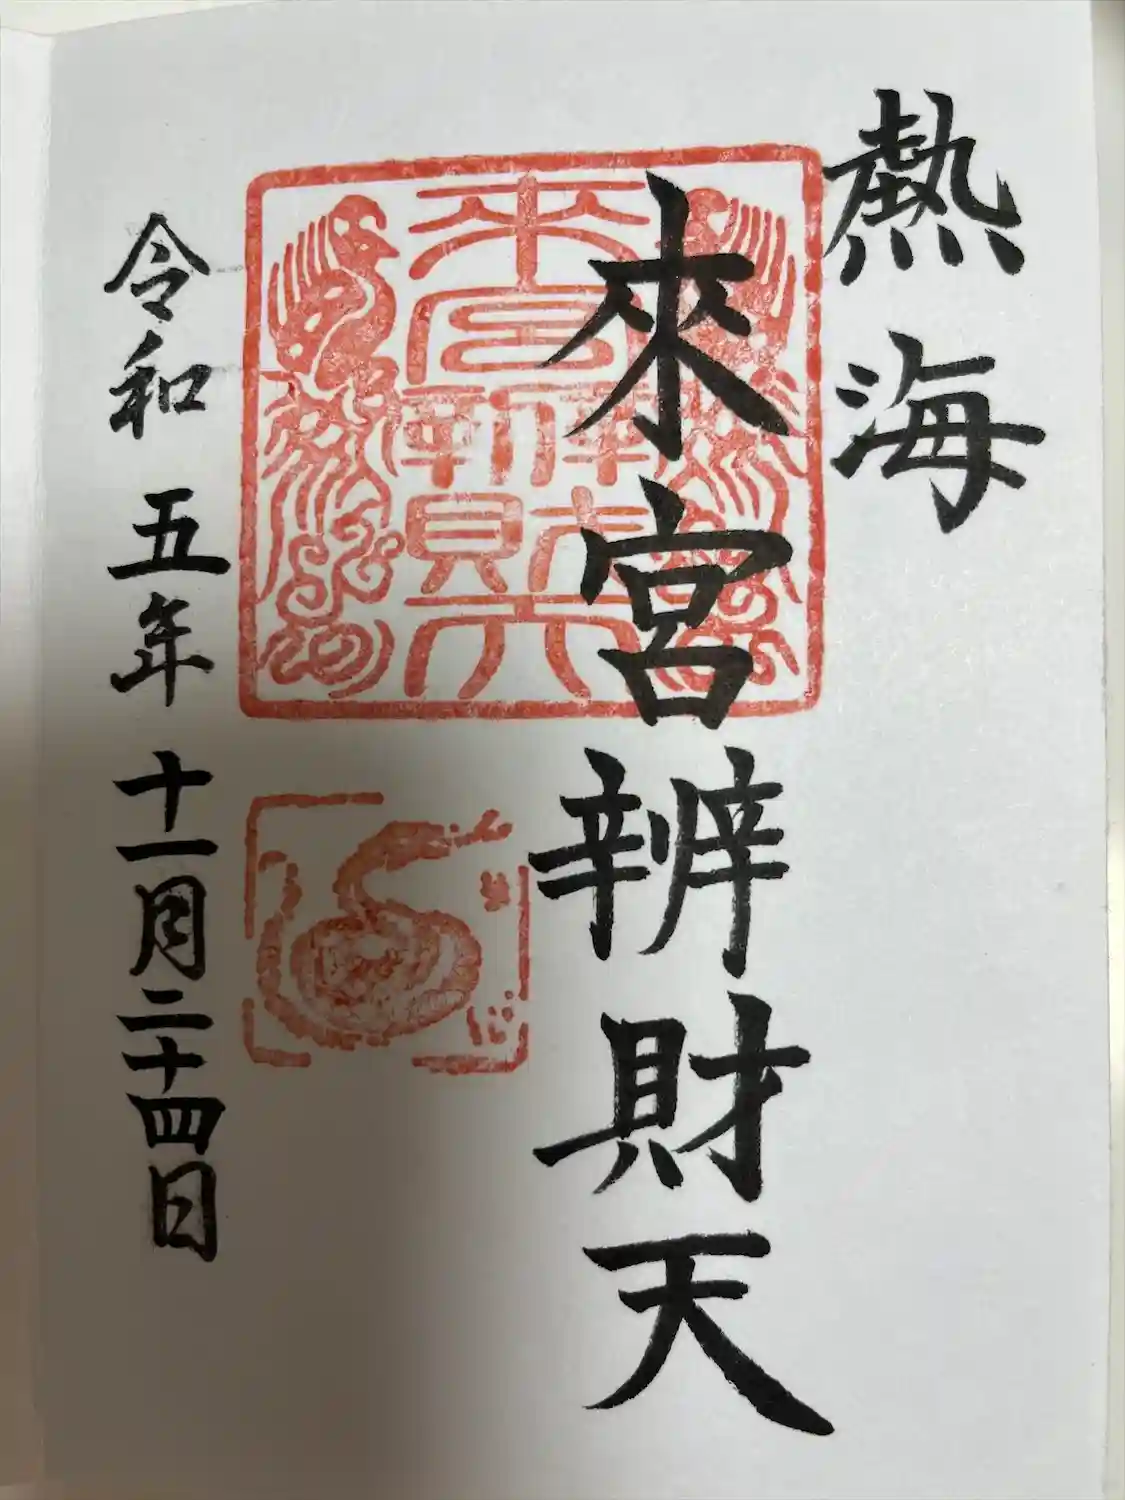 熱海
來宮辨財天
令和五年十一月二十四日
来宮辨財天